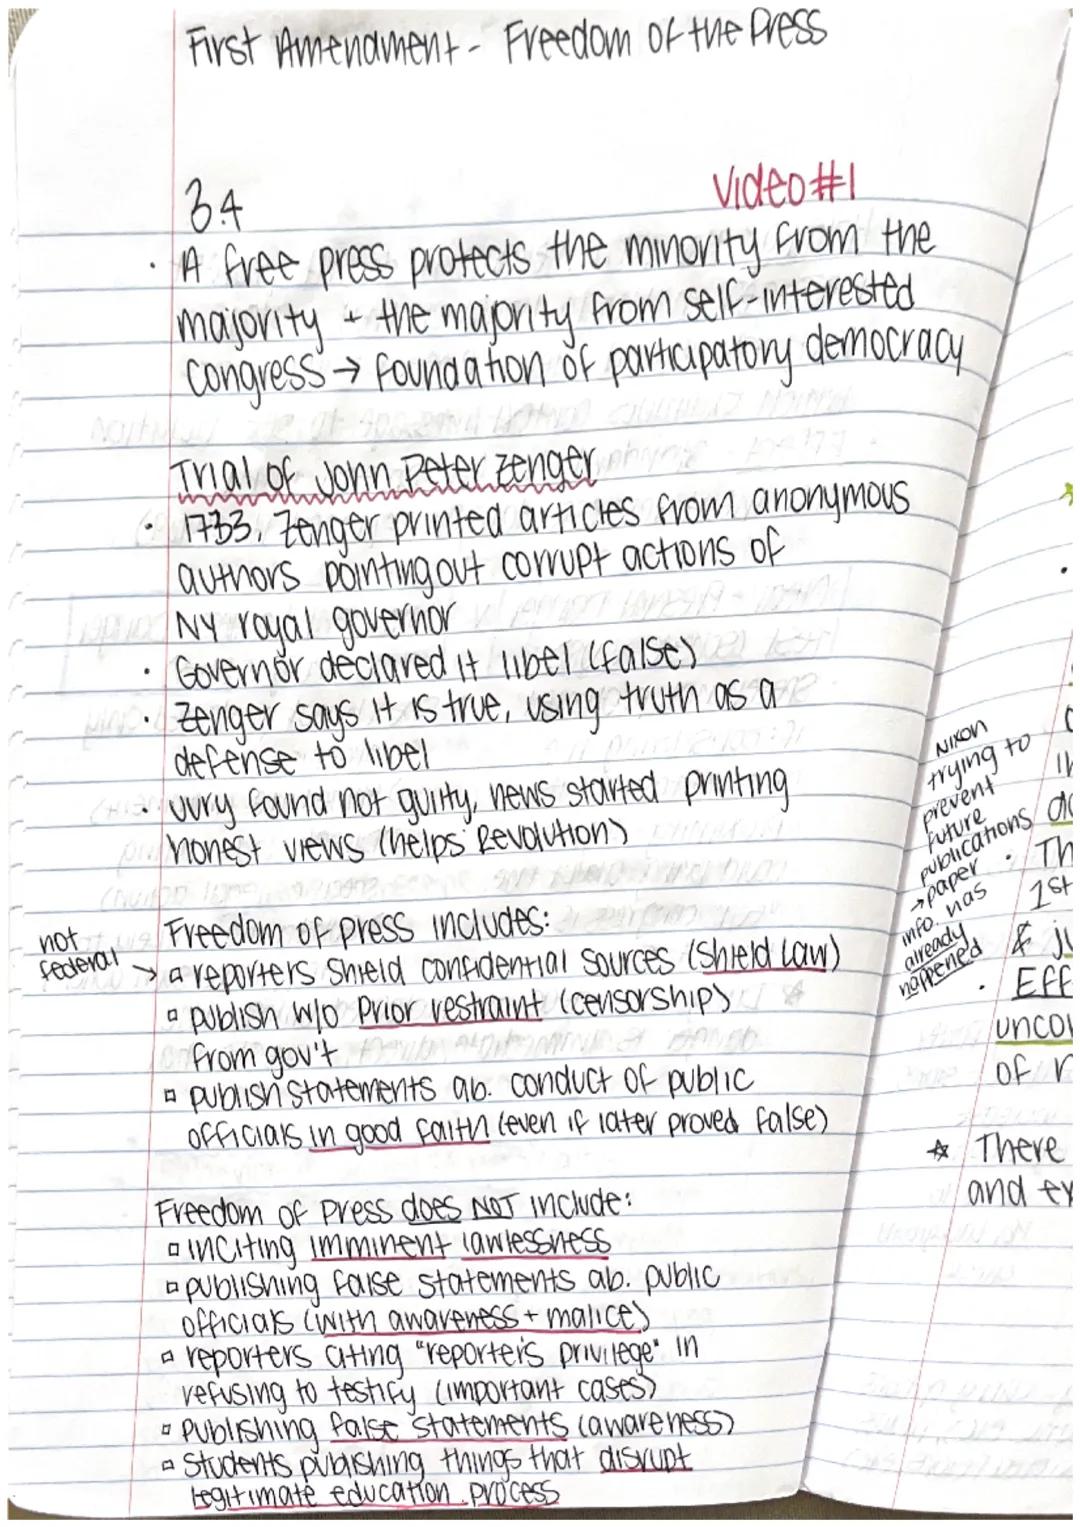 First Amendment - Freedom of the Press
3.4
Video #1
· A free press protects the minority from the
majority + the majority from self-interested
Congress → foundation of participatory democracy
Trial of John Peter Zenger
· 1733, Zenger printed articles from anonymous
authors pointing out corrupt actions of
NY royal governor
· Governor declared it libel (false)
· Zenger says it is true, using truth as a
defense to libel
· Jury found not guilty, news started printing
honest views (helps Revolution)
Freedom of press includes:
not
federal →
▫ reporters shield confidential sources (Shield Law)
▫ publish w/o Prior restraint (censorship)
from gov't
▫ publish statements ab. conduct of public
officials in good faith (even if later proved false)
Freedom of Press does NOT include:
▫ inciting imminent lawlessness
▫ publishing false statements ab. public
officials (with awareness + malice)
▫ reporters citing "reporter's privilege" in
refusing to testify (important cases)
▫ Publishing false statements (awareness)
▫ Students publishing things that disrupt
legitimate education process
Nixon
trying to
prevent
future
publications
→ paper
info. has
already
happened
· Th
1st
& ju
· Eff
uncon
of r
☆ There
and ex